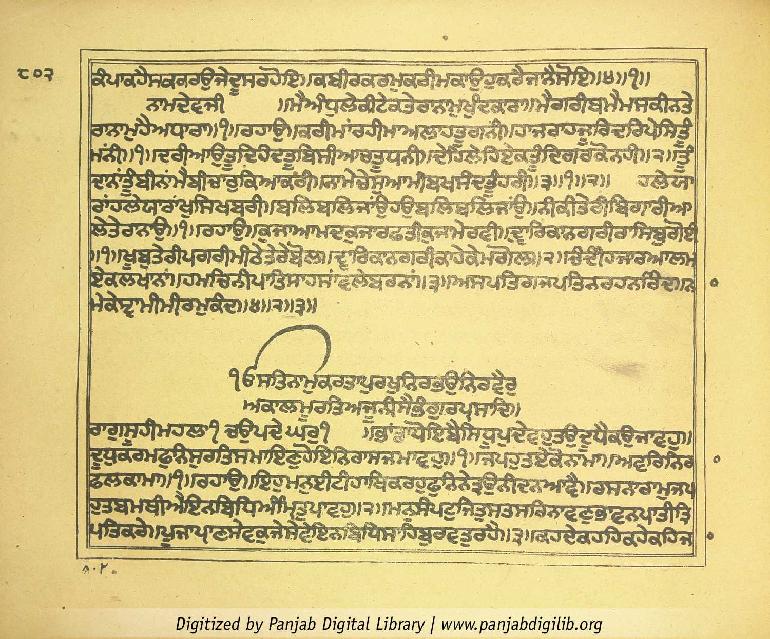 ੮੦੨
ਕੰਪਾਕਹੈਸਕਕਰਉਜੇਦੂਸਰਹੋਇ॥ਕਬੀਰਕਰਮੁਕਰੀਮਕਾਉਹੁਕਰੈਜਾਨੈਸੋਇ॥੪॥੧॥
ਨਾਮਦੇਵਜੀ ॥ਮੈਅੰਧੁਲੇਕੀਟੇਕਤੇਰਾਨਾਮੁਖੁੰਦਕਾਰਾ॥ਮੈਗਰੀਬਮੈਮਸਕੀਨਤੇ
ਰਾਨਾਮੁਹੈਅਧਾਰਾ॥੧॥ਰਹਾਉ॥ਕਰੀਮਾਂਰਹੀਮਾਅਲਾਹਤੂਗਨੀ॥ਹਾਜਰਾਹਜੂਰਿਦਰਿਪੇਸਿਤੂੰ
ਮਨੀ॥੧॥ਦਰੀਆਉਤੂਦਿਹੰਦਤੂਬਿਸੀਆਰਤੂਧਨੀ॥ਦੇਹਿਲੇਹਿਏਕਤੂੰਦਿਗਰਕੋਨਹੀ॥੨॥ਤੂੰ
ਦਾਨਾਂਤੂੰਬੀਨਾਂਮੈਬੀਚਾਰੁਕਿਆਕਰੀ॥ਨਾਮੇਚੇਸੁਆਮੀਬਖਸੰਦਤੂੰਹਰੀ॥੩॥੧॥੨॥ ਹਲੇਯਾ
ਰਾਂਹਲੇਯਾਰਾਂਖੁਸਿਖਬਰੀ॥ਬਲਿਬਲਿਜਾਂਉਹਉਬਲਿਬਲਿਜਾਂਉ॥ਨੀਕੀਤੇਰੀਬਿਗਾਰੀਆ
ਲੇਤੇਰਾਨਾਉ॥੧॥ਰਹਾਉ॥ਕੁਜਾਆਮਦਕੁਜਾਰਫਤੀਕੁਜਾਮੇਰਵੀ॥ਦ੍ਵਾਰਿਕਾਨਗਰੀਰਾਸਿਬੁਗੋਈ
॥੧॥ਖੂਬੁਤੇਰੀਪਗਰੀਮੀਠੇਤੇਰੇਬੋਲ॥ਦ੍ਵਾਰਿਕਾਨਗਰੀਕਾਹੇਕੇਮਗੋਲ॥੨॥ਚੰਦੀਹਜਾਰਆਲਮ
ਏਕਲਖਾਨਾਂ॥ਹਮਚਿਨੀਪਾਤਿਸਾਹਸਾਂਵਲੇਬਰਨਾਂ॥੩॥ਅਸਪਤਿਗਜਪਤਿਨਰਹਨਰਿੰਦ॥ਨਾ
ਮੇਕੇਸ੍ਵਾਮੀਮੀਰਮੁਕੰਦ॥੪॥੨॥੩॥
ੴਸਤਿਨਾਮੁਕਰਤਾਪੁਰਖੁਨਿਰਭਉਨਿਰਵੈਰੁ
ਅਕਾਲਮੂਰਤਿਅਜੂਨੀਸੈਭੰਗੁਰਪ੍ਰਸਾਦਿ॥
ਰਾਗੁਸੂਹੀਮਹਲਾ੧ ਚਉਪਦੇ ਘਰੁ੧ ॥ਭਾਂਡਾਧੋਇਬੈਸਿਧੂਪੁਦੇਵਹੁਤਉਦੂਧੈਕਉਜਾਵਹੁ॥
ਦੂਧੁਕਰਮਫੁਨਿਸੁਰਤਿਸਮਾਇਣੁਹੋਇਨਿਰਾਸਜਮਾਵਹੁ॥੧॥ਜਪਹੁਤਏਕੋਨਾਮਾ॥ਅਵਰਿਨਿਰਾ
ਫਲਕਾਮਾ॥੧॥ਰਹਾਉ॥ਇਹੁਮਨੁਈਟੀਹਾਥਿਕਰਹੁਫੁਨਿਨੇਤ੍ਰਉਨੀਦਨਆਵੈ॥ਰਸਨਾਨਾਮੁਜਪ
ਹੁਤਬਮਥੀਐਇਨਬਿਧਿਅੰਮ੍ਰਿਤੁਪਾਵਹੁ॥੨॥ਮਨੁਸੰਪਟੁਜਿਤੁਸਤਸਰਿਨਾਵਣੁਭਾਵਨਪਾਤੀਤ੍ਰਿ
ਪਤਿਕਰੇ॥ਪੂਜਾਪ੍ਰਾਣਸੇਵਕੁਜੇਸੇਵੇਇਨਬਿਧਿਸਾਹਿਬੁਰਵਤੁਰਹੈ॥੩॥ਕਹਦੇਕਹਹਿਕਹੇਕਹਿਜਾ
Digitized by Panjab Digital Library | www.panjabdigilib.org